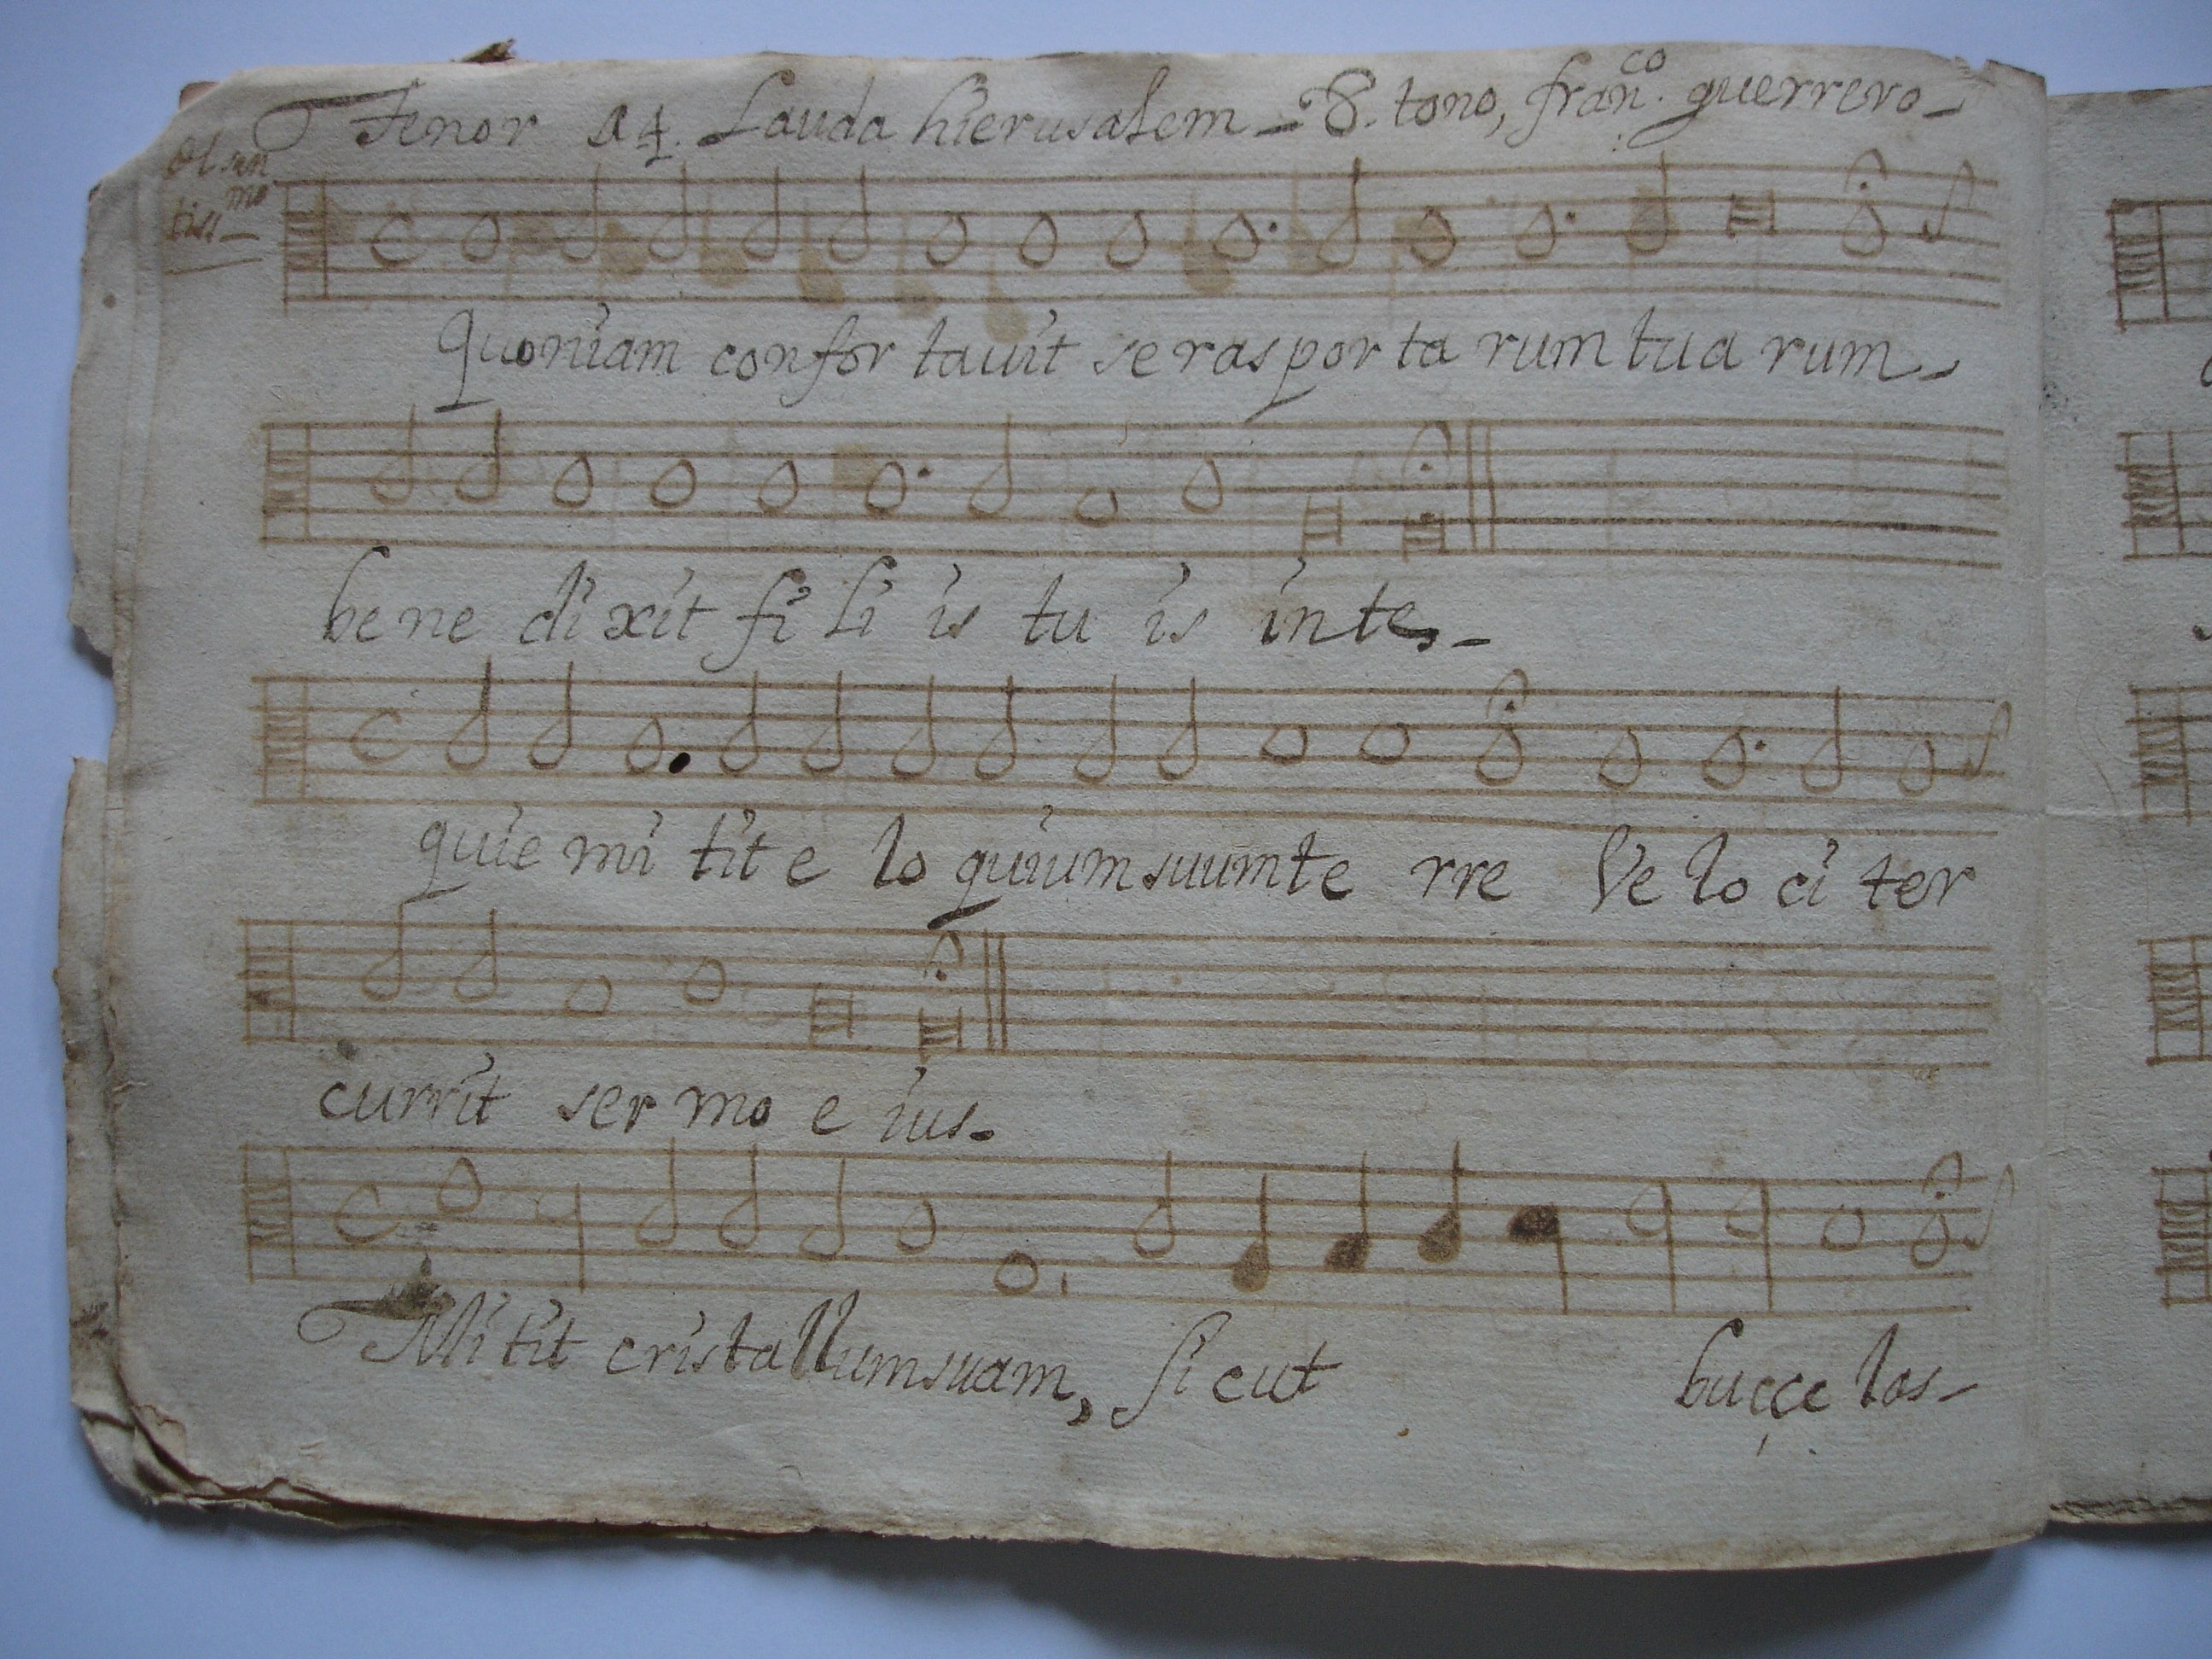 Tenor a4. Lauda hierusalem - 8. tono, fran.co guerrero -
quoniam confor tauit se ras por ta rum tua rum -
be ne di xit fi li is tu is in te, -
qui e mi tit e lo quium suum te rre Ve lo ci ter
currit ser mo e ius -
Mi tit cristallum suam, si cut bucçe las -